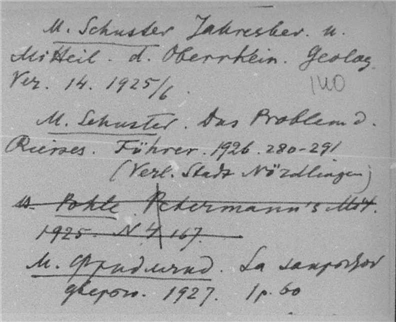 M. Schuster Jahresber. u.
Mitteil. d. Oberrhein. Geolog.
Ver. 14. 1925/6.
140
M. Schuster. Das Problem d.
Rieses. Führer. 1926. 280-291
(Verl. Stadt Nördlingen)
Pohle Petermann's Mitt.
1925. N 4 167.
М. Фридлянд. За
1927. 1р. 60